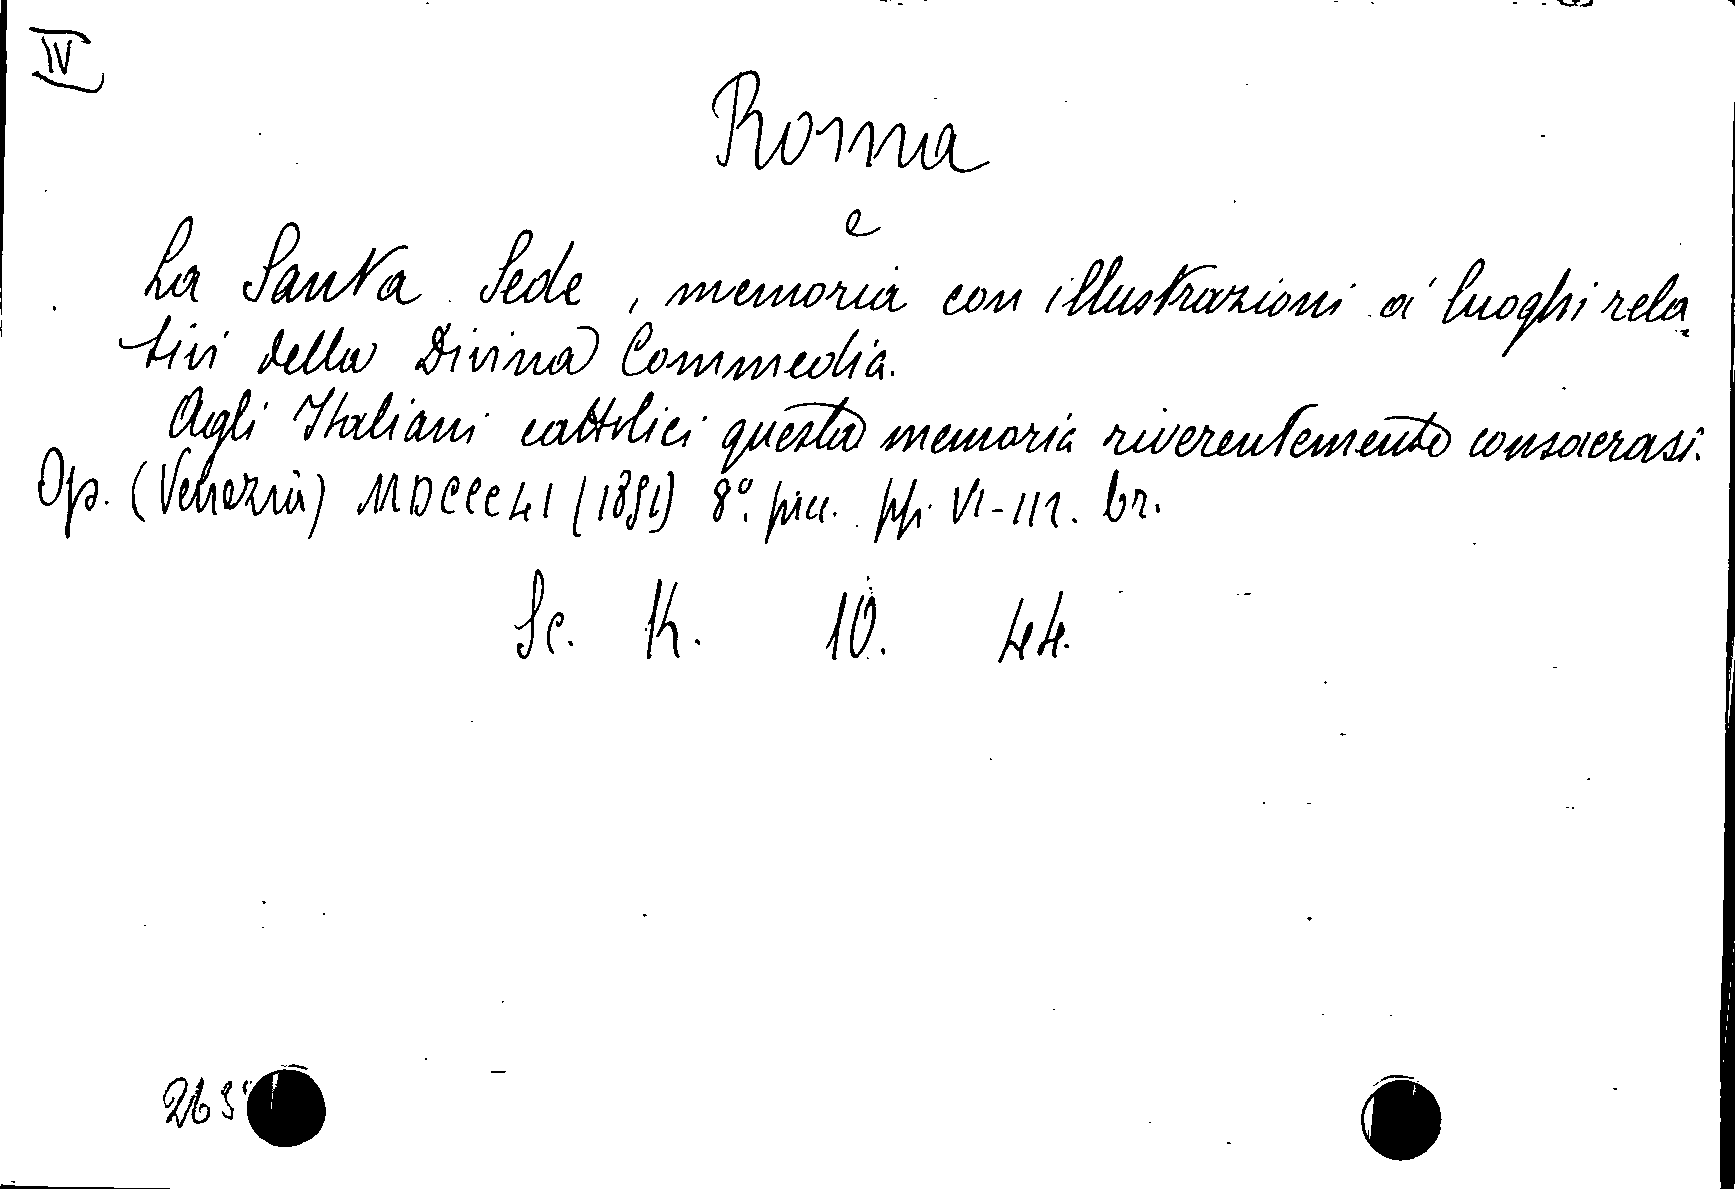 IV
Roma
e
La Santa Sede, memoria con illustrazioni ai luoghi rela-
tivi della Divina Commedia.
Agli Italiani cattolici questa memoria riverentemente consacrasi.
Op. (Venezia) MDCCCLI (1851) 8º. picc. pp. VI-112. br.
Sc. K. 10. 44.
263